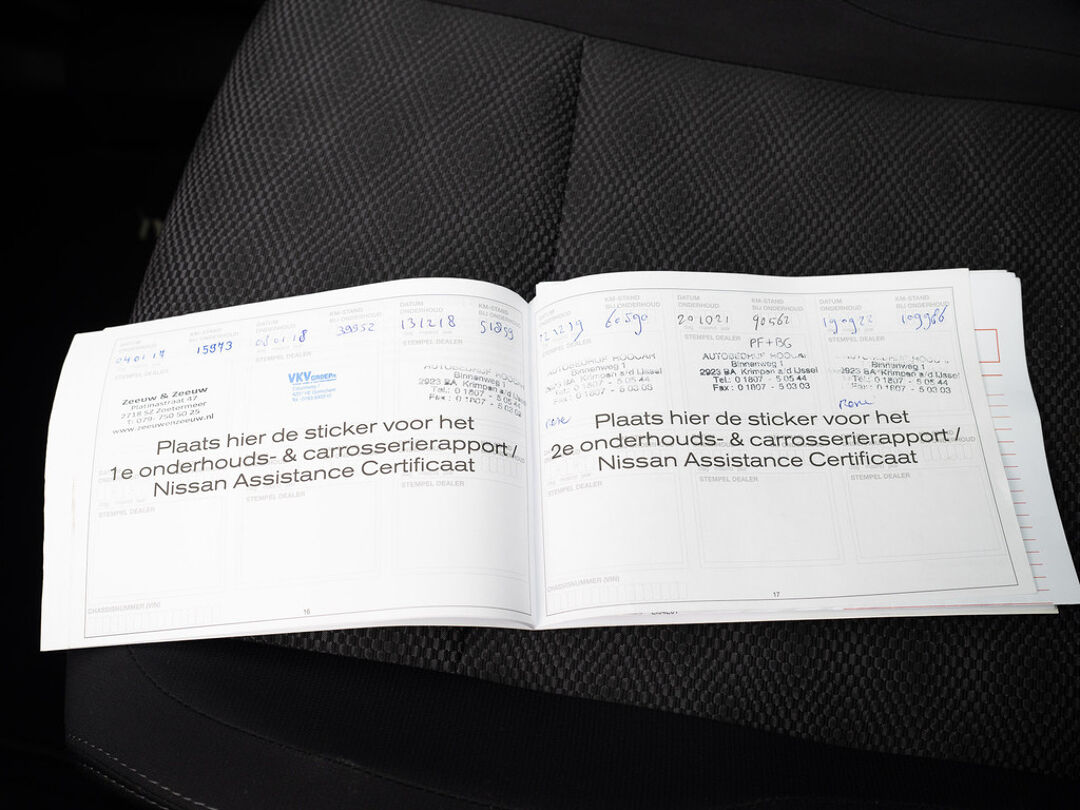 DATUM ONDERHOUD
KM-STAND BIJ ONDERHOUD
DATUM ONDERHOUD
KM-STAND BIJ ONDERHOUD
DATUM ONDERHOUD
KM-STAND BIJ ONDERHOUD
040117
15973
39952
131218
51859
STEMPEL DEALER
STEMPEL DEALER
Zeeuw & Zeeuw
Platinastraat 47
2718 SZ Zoetermeer
T: 079-750 50 25
www.zeeuwenzeeuw.nl
VKV GROEP
Binnenweg 1
2923 BA Krimpen a/d IJssel
Tel.: 0 1807 - 5 05 44
Fax: 0 1807 - 5 03 03
Plaats hier de sticker voor het
1e onderhouds- & carrosserierapport /
Nissan Assistance Certificaat
STEMPEL DEALER
STEMPEL DEALER
STEMPEL DEALER
CHASSISNUMMER (VIN)
16
DATUM ONDERHOUD
KM-STAND BIJ ONDERHOUD
DATUM ONDERHOUD
KM-STAND BIJ ONDERHOUD
DATUM ONDERHOUD
KM-STAND BIJ ONDERHOUD
60590
201021
90562
190922
109986
STEMPEL DEALER
STEMPEL DEALER
PF+BG
Binnenweg 1
2923 BA Krimpen a/d IJssel
Tel.: 0 1807 - 5 05 44
Fax: 0 1807 - 5 03 03
AUTOBEDRIJF
Binnenweg 1
2923 BA Krimpen a/d IJssel
Tel.: 0 1807 - 5 05 44
Fax: 0 1807 - 5 03 03
Binnenweg 1
2923 BA Krimpen a/d IJssel
Tel.: 0 1807 - 5 05 44
Fax: 0 1807 - 5 03 03
Plaats hier de sticker voor het
2e onderhouds- & carrosserierapport /
Nissan Assistance Certificaat
STEMPEL DEALER
STEMPEL DEALER
STEMPEL DEALER
CHASSISNUMMER (VIN)
17